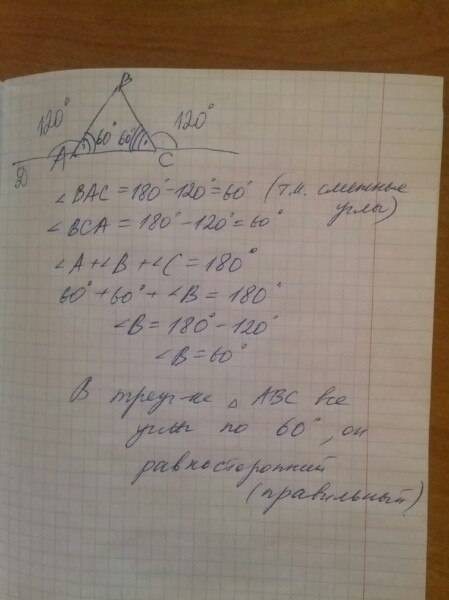 B
120° 60° 60° 120°
A C
D
∠BAC = 180° - 120° = 60° (т.к. смежные
углы)
∠BCA = 180° - 120° = 60°
∠A + ∠B + ∠C = 180°
60° + 60° + ∠B = 180°
∠B = 180° - 120°
∠B = 60°
В треуг-ке △ ABC все
углы по 60°, он
равносторонний
(правильный)